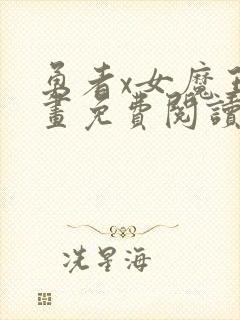 勇者x女魔王
畫免費閱讀
冼星海